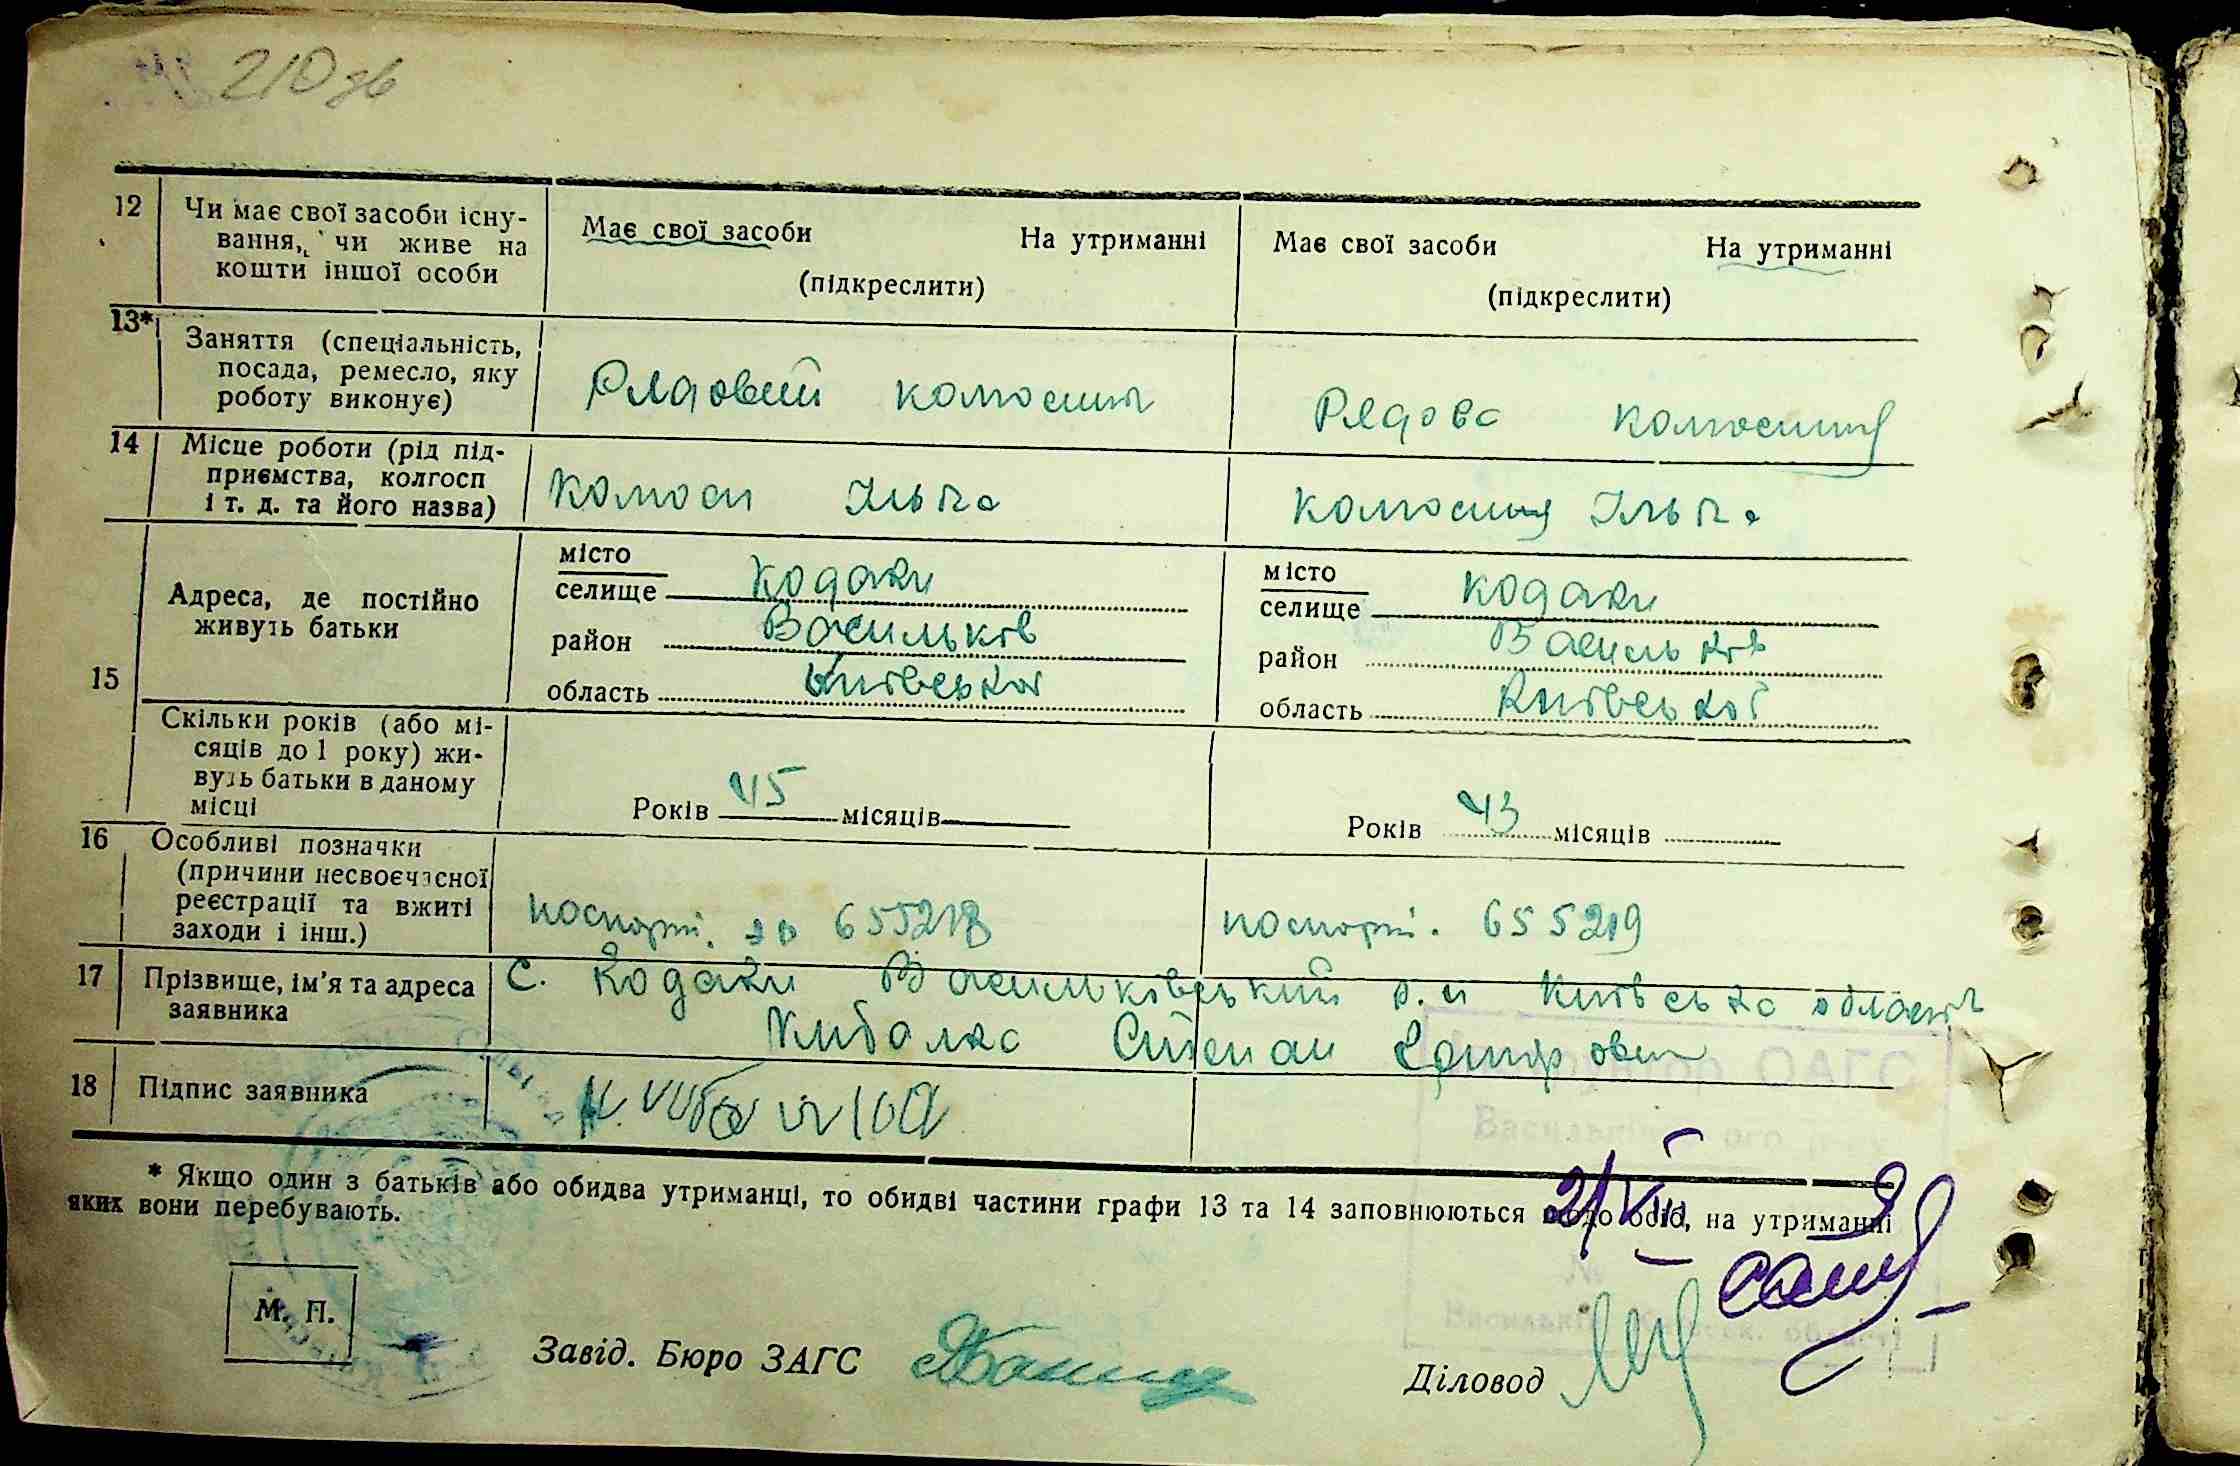 210 зв
12 Чи має свої засоби існу-
вання, чи живе на
кошти іншої особи
Має свої засоби На утриманні
(підкреслити)
Має свої засоби На утриманні
(підкреслити)
13* Заняття (спеціальність,
посада, ремесло, яку
роботу виконує)
Рядовий
Рядова
14 Місце роботи (рід під-
приємства, колгосп
і т. д. та його назва)
Ілліча
Ілліча
15 Адреса, де постійно
живуть батьки
місто
селище Кодаки
район Васильків
область Київської
місто
селище Кодаки
район Васильків
область Київської
Скільки років (або мі-
сяців до 1 року) жи-
вуть батьки в даному
місці
Років 45 місяців
Років 43 місяців
16 Особливі позначки
(причини несвоєчасної
реєстрації та вжиті
заходи і інш.)
паспорт. 655218
паспорт. 655219
17 Прізвище, ім'я та адреса
заявника
С. Кодаки Васильківський р.н Київська область
Степан
18 Підпис заявника
* Якщо один з батьків або обидва утриманці, то обидві частини графи 13 та 14 заповнюються щодо осіб, на утриманні
яких вони перебувають.
М. П.
Завід. Бюро ЗАГС
Діловод